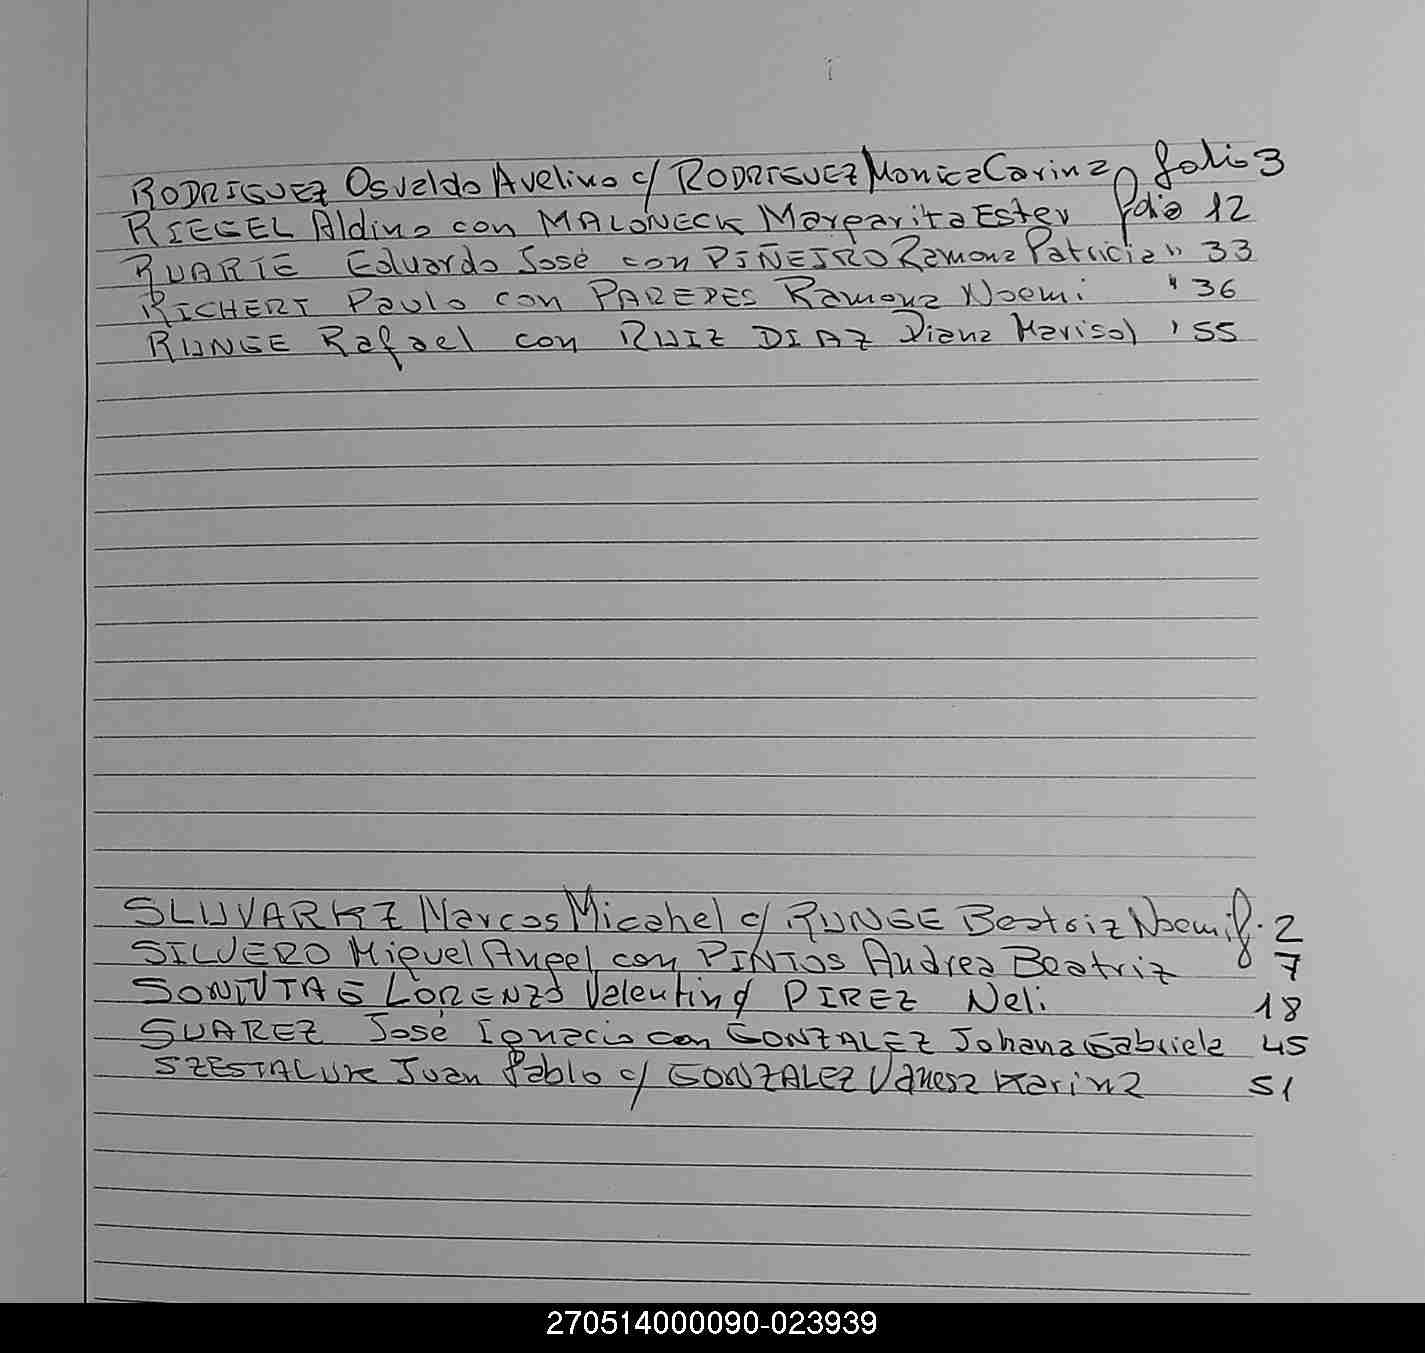 RODRIGUEZ Osvaldo Avelino c/ RODRIGUEZ Monica Carina folio 3
RIEGEL Aldino con MALONECK Margarita Ester folio 12
RUARTE Eduardo José con PIÑEIRO Ramona Patricia " 33
RICHERT Paulo con PAREDES Ramona Noemi " 36
RUNGE Rafael con RUIZ DIAZ Diana Marisol ' 55
SLUVARKZ Marcos Micahel c/ RUNGE Beatriz Noemi f. 2
SILVERO Miguel Angel con PINTOS Andrea Beatriz 7
LORENZO Valentin c/ PIREZ Neli 18
SUAREZ José Ignacio con GONZALEZ Johana Gabriela 45
SZESTALUK Juan Pablo c/ GONZALEZ Vanesa Karina 51
270514000090-023939